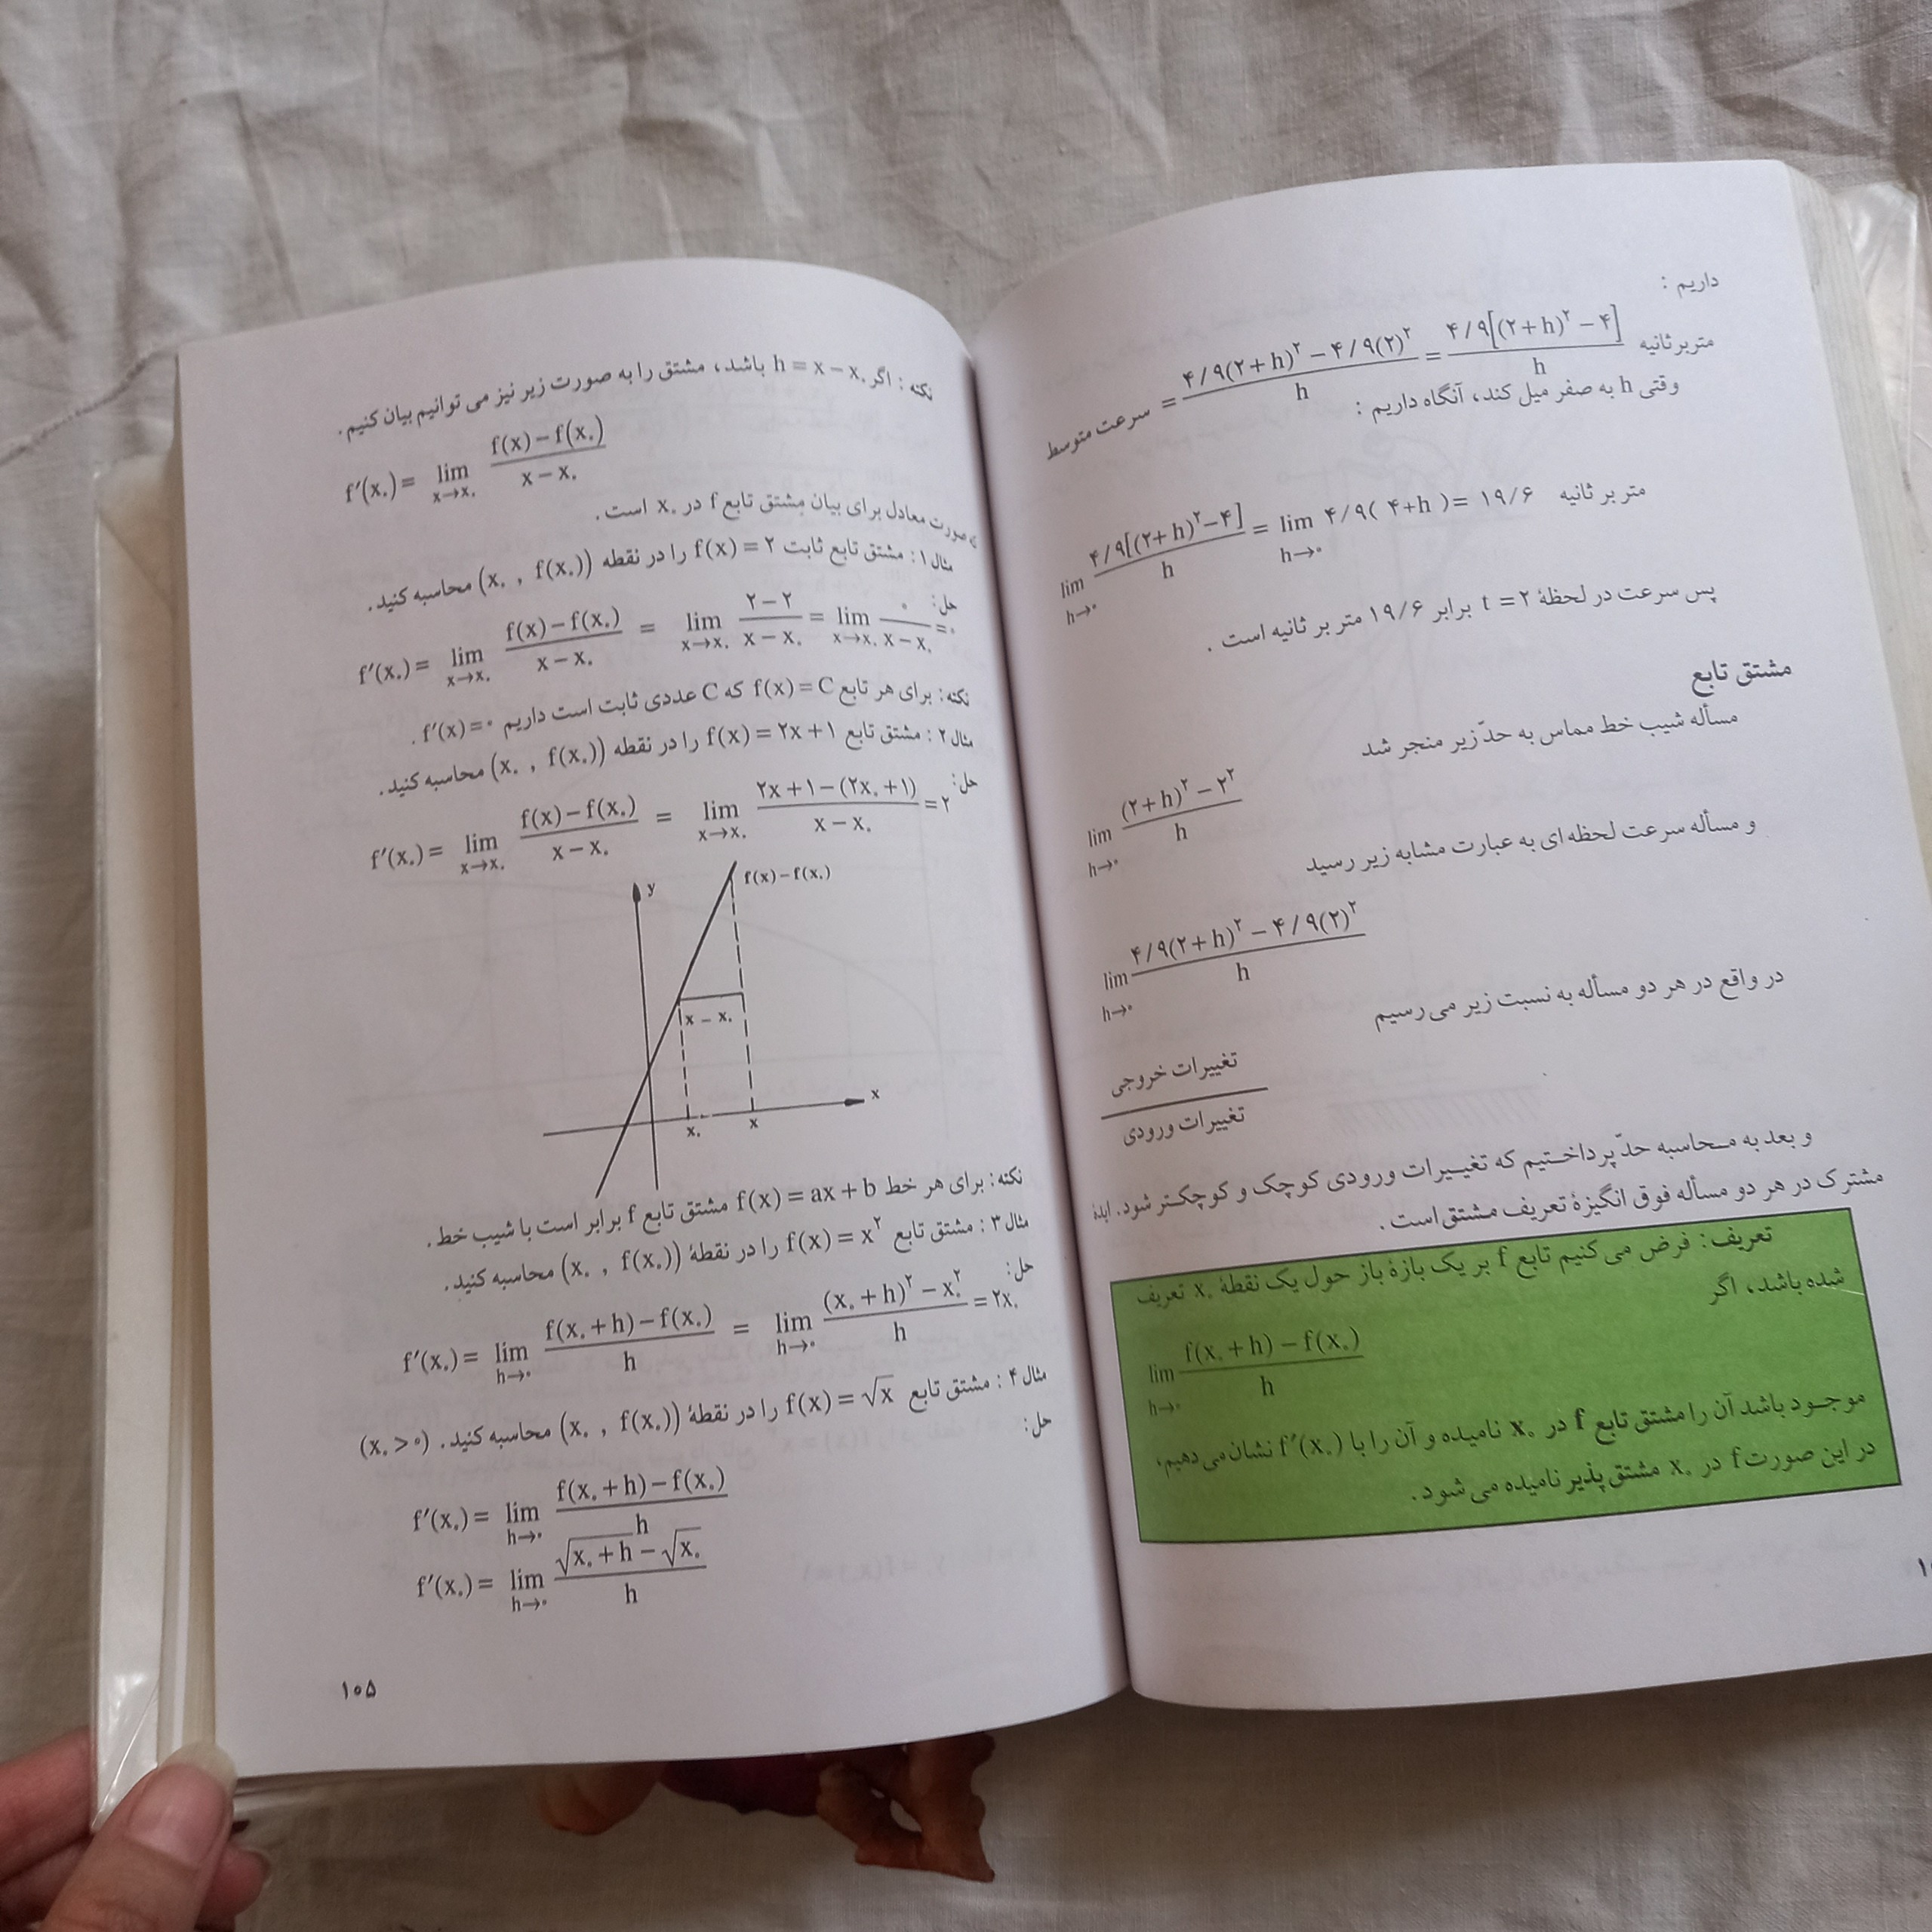 داریم :
سرعت متوسط = ۴/۹(۲+h)۲ − ۴/۹(۲)۲ / h = ۴/۹[(۲+h)۲ − ۴] / h متر بر ثانیه
وقتی h به صفر میل کند، آنگاه داریم :
lim h→۰ ۴/۹[(۲+h)۲−۴] / h = lim h→۰ ۴/۹( ۴+h )= ۱۹/۶ متر بر ثانیه
پس سرعت در لحظهٔ t = ۲ برابر ۱۹/۶ متر بر ثانیه است .
مشتق تابع
مسأله شیب خط مماس به حدّ زیر منجر شد
lim h→۰ (۲+h)۲ − ۲۲ / h
و مسأله سرعت لحظه ای به عبارت مشابه زیر رسید
lim h→۰ ۴/۹(۲+h)۲ − ۴/۹(۲)۲ / h
در واقع در هر دو مسأله به نسبت زیر می رسیم
تغییرات خروجی
تغییرات ورودی
و بعد به محاسبه حدّ پرداختیم که تغییرات ورودی کوچک و کوچکتر شود. ایدهٔ
مشترک در هر دو مسأله فوق انگیزهٔ تعریف مشتق است .
تعریف: فرض می کنیم تابع f بر یک بازهٔ باز حول یک نقطهٔ x۰ تعریف
شده باشد، اگر
lim h→۰ f(x۰+h) − f(x۰) / h
موجود باشد آن را مشتق تابع f در x۰ نامیده و آن را با f′(x۰) نشان می دهیم،
در این صورت f در x۰ مشتق پذیر نامیده می شود .
نکته : اگر h = x − x۰ باشد، مشتق را به صورت زیر نیز می توانیم بیان کنیم .
f′(x۰) = lim x→x۰ f(x)−f(x۰) / x−x۰
صورت معادل برای بیان مشتق تابع f در x۰ است .
مثال ۱ : مشتق تابع ثابت f(x) = ۲ را در نقطه (x۰ , f(x۰)) محاسبه کنید .
حل:
f′(x۰) = lim x→x۰ f(x)−f(x۰) / x−x۰ = lim x→x۰ ۲−۲ / x−x۰ = lim x→x۰ ۰ / x−x۰ =۰
نکته: برای هر تابع f(x) = C که C عددی ثابت است داریم f′(x)=۰ .
مثال ۲ : مشتق تابع f(x) = ۲x+۱ را در نقطه (x۰ , f(x۰)) محاسبه کنید .
حل:
f′(x۰) = lim x→x۰ f(x)−f(x۰) / x−x۰ = lim x→x۰ ۲x+۱−(۲x۰+۱) / x−x۰ = ۲
y
f(x)−f(x۰)
x − x۰
x
x۰
x
نکته: برای هر خط f(x) = ax+b مشتق تابع f برابر است با شیب خط .
مثال ۳ : مشتق تابع f(x) = x۲ را در نقطهٔ (x۰ , f(x۰)) محاسبه کنید .
حل:
f′(x۰) = lim h→۰ f(x۰+h)−f(x۰) / h = lim h→۰ (x۰+h)۲ − x۰۲ / h = ۲x۰
مثال ۴ : مشتق تابع f(x) = √x را در نقطهٔ (x۰ , f(x۰)) محاسبه کنید . (x۰ > ۰)
حل:
f′(x۰) = lim h→۰ f(x۰+h)−f(x۰) / h
f′(x۰) = lim h→۰ √x۰+h − √x۰ / h
۱۰۵